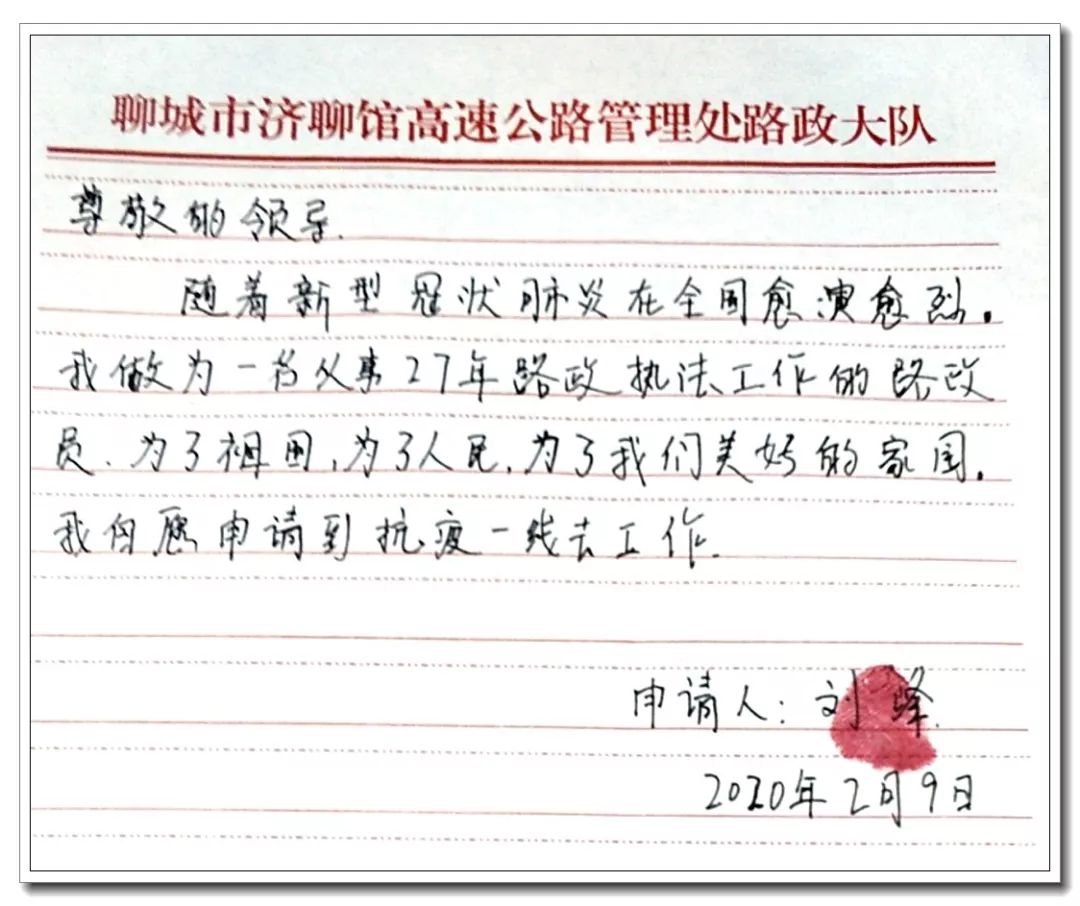 聊城市济聊馆高速公路管理处路政大队
尊敬的领导.
随着新型冠状肺炎在全国愈演愈烈.
我做为一名从事27年路政执法工作的路政
员.为了祖国,为了人民,为了我们美好的家园.
我自愿申请到抗疫一线去工作.
申请人:刘峰.
2020年2月9日